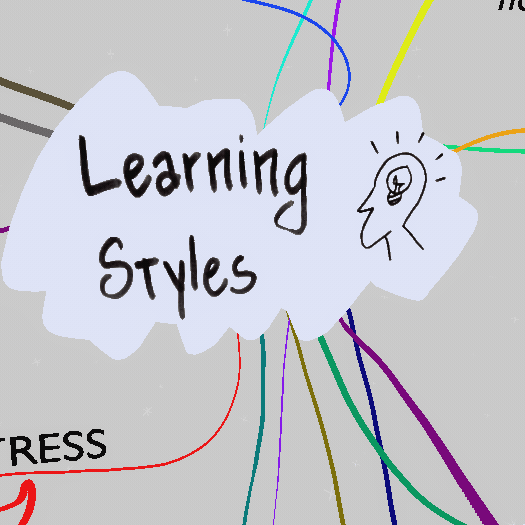 Learning
Styles
TRESS